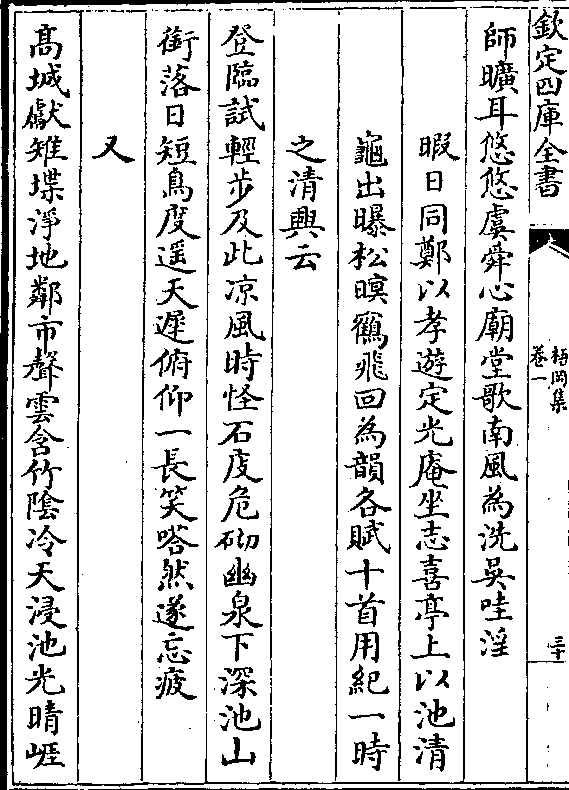 欽定四庫全書
梧岡集
卷一
三十
師曠耳悠悠虞舜心廟堂歌南風為洗吳哇淫
暇日同鄭以孝遊定光庵坐志喜亭上以池清
龜出曝松暝鶴飛回為韻各賦十首用紀一時
之清興云
登臨試輕步及此凉風時怪石庋危砌幽泉下深池山
銜落日短鳥度遥天遲俯仰一長笑嗒然遂忘疲
又
高城獻雉堞淨地鄰市聲雲含竹陰冷天浸池光晴崕